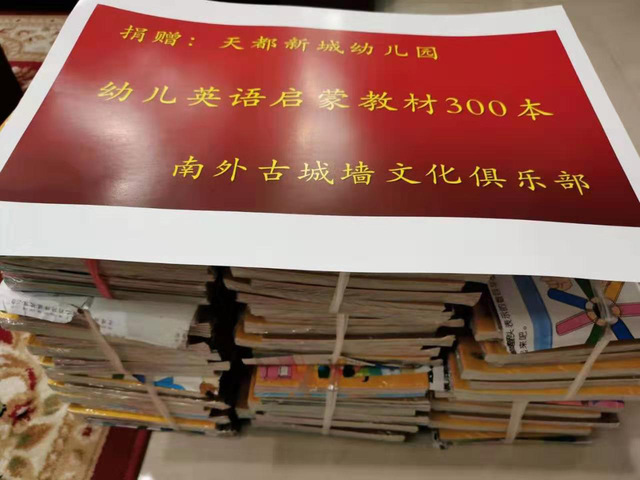 捐赠：天都新城幼儿园
幼儿英语启蒙教材300本
南外古城墙文化俱乐部
来吧。